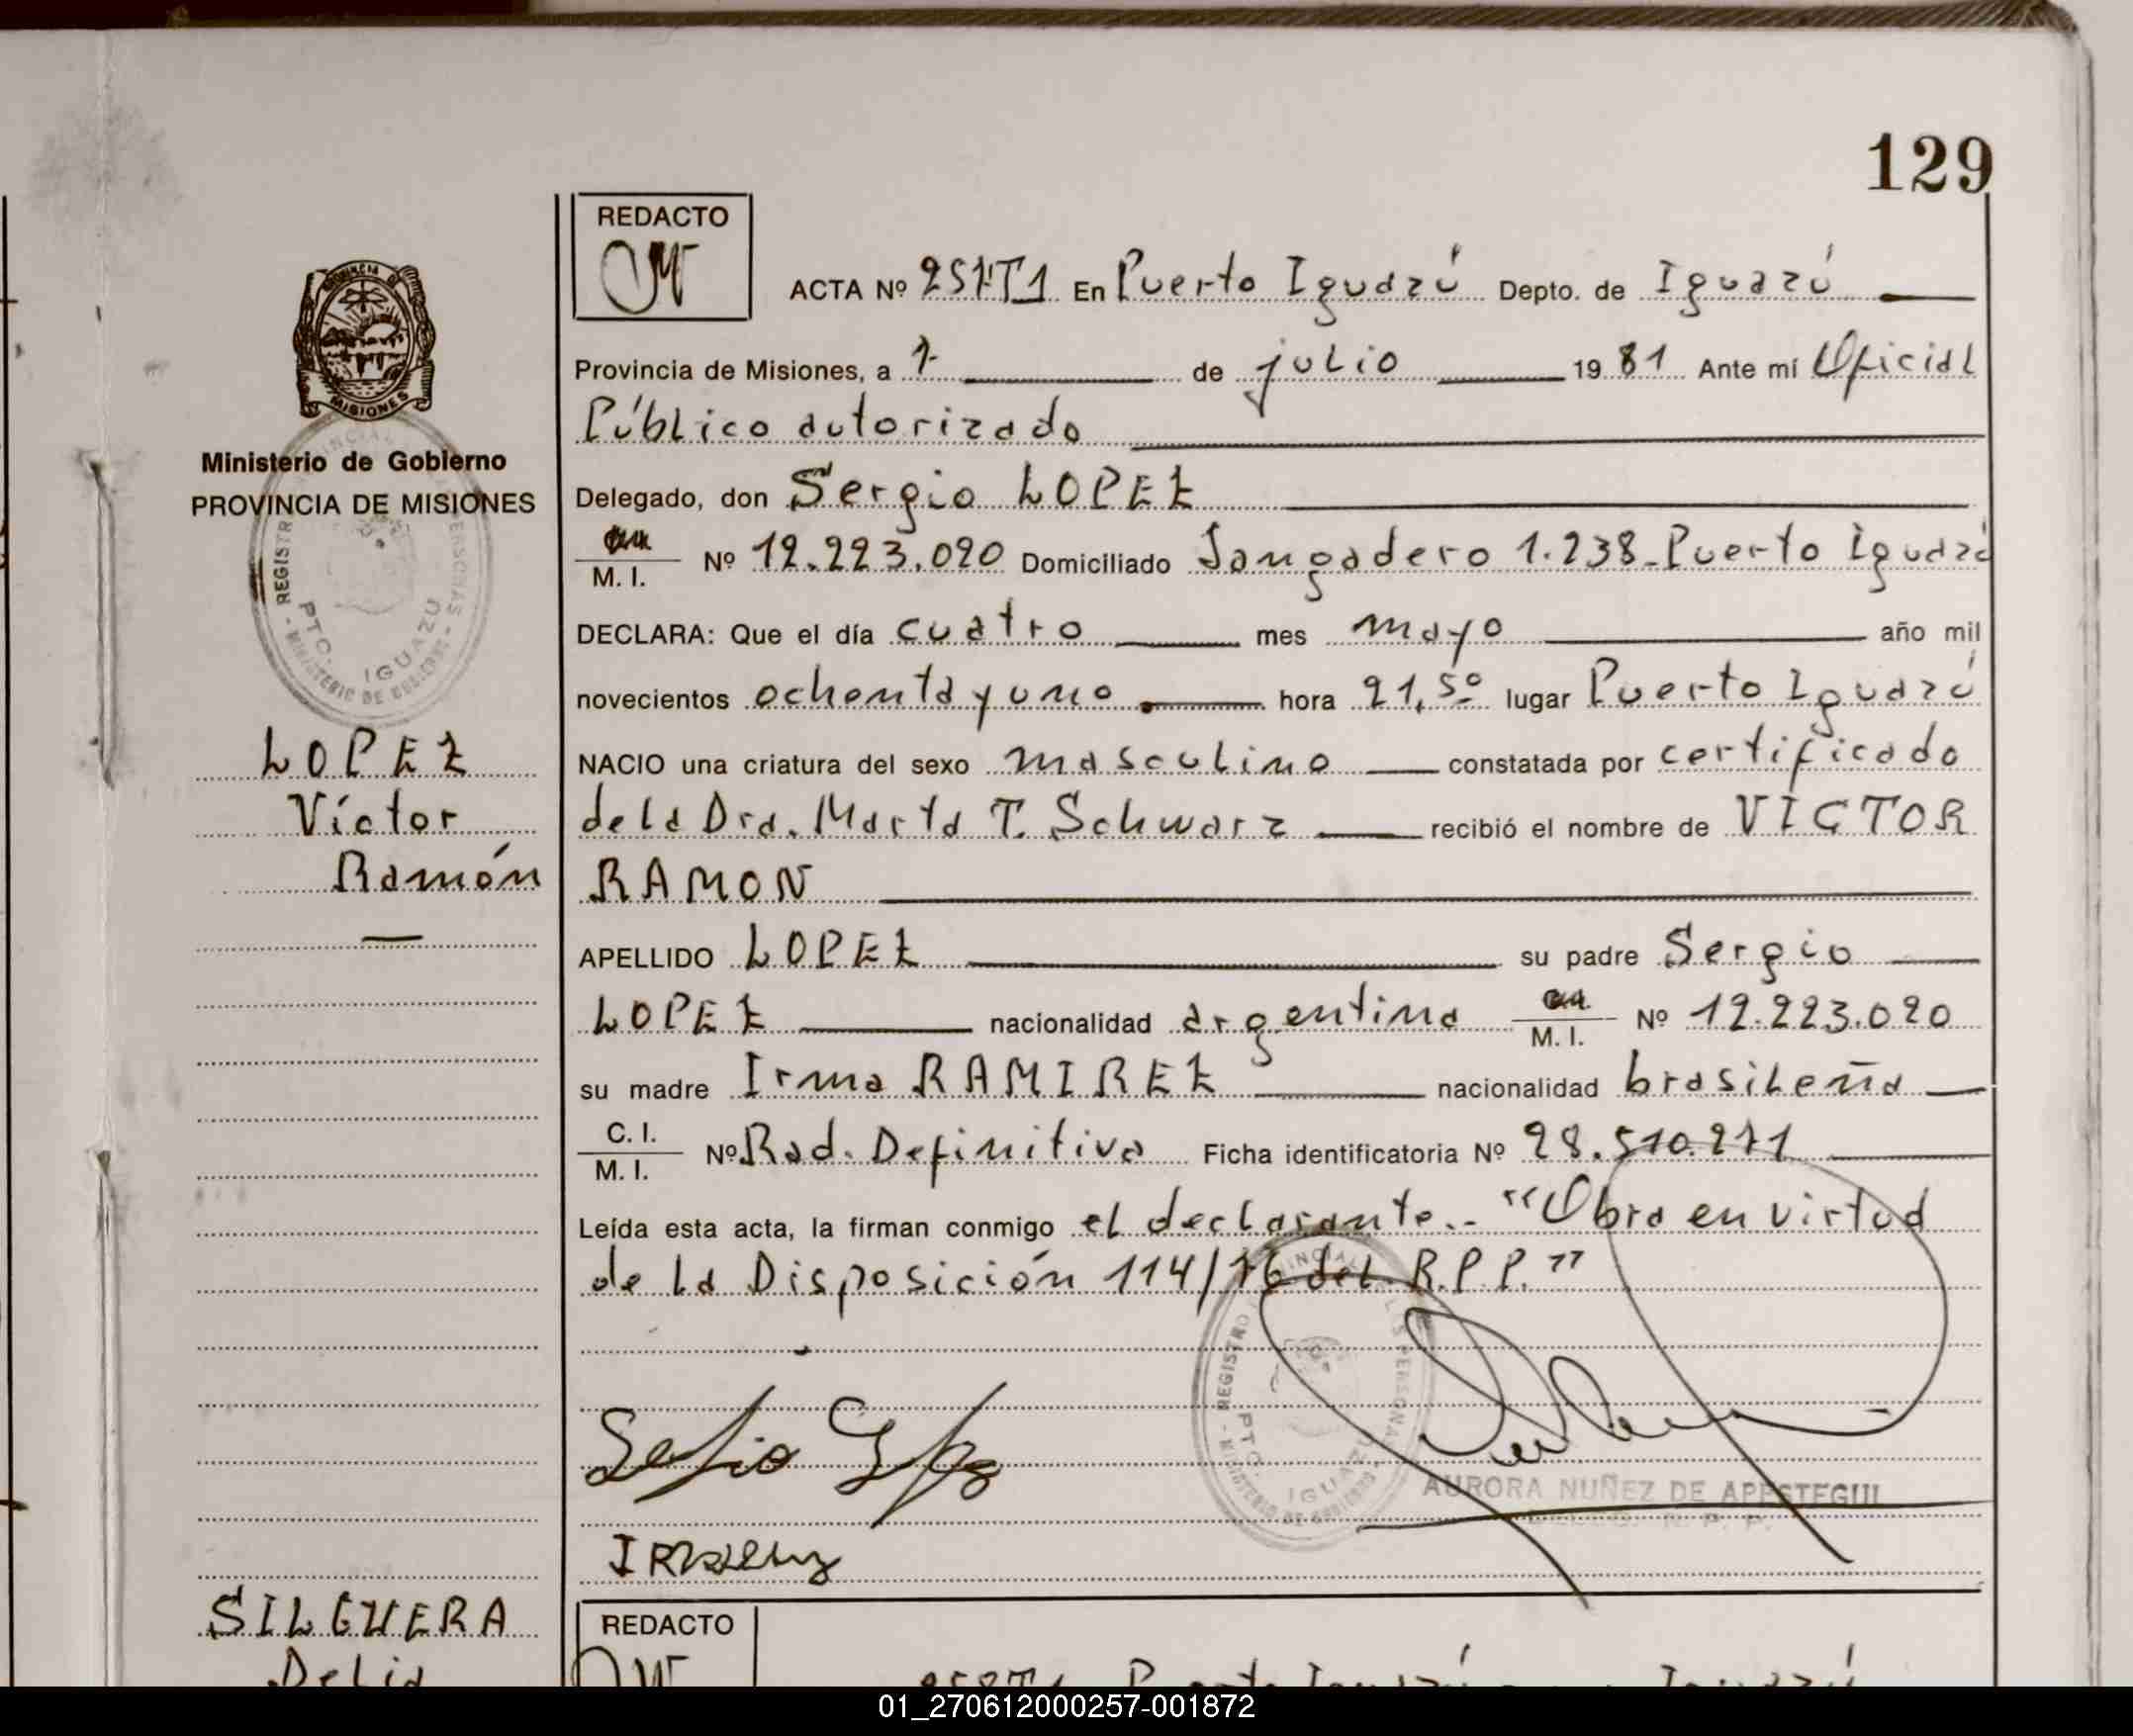 129
REDACTO
ACTA Nº 257T1 En Puerto Iguazú Depto. de Iguazú
Provincia de Misiones, a 7 de julio 1981 Ante mí Oficial
Público autorizado
Delegado, don Sergio LOPEZ
M. I. Nº 12.223.020 Domiciliado Jangadero 1.238-Puerto Iguazú
DECLARA: Que el día cuatro mes mayo año mil
novecientos ochenta y uno hora 21,50 lugar Puerto Iguazú
NACIO una criatura del sexo masculino constatada por certificado
de la Dra. Marta T. Schwarz recibió el nombre de VICTOR
RAMON
APELLIDO LOPEZ su padre Sergio
LOPEZ nacionalidad argentina M. I. Nº 12.223.020
su madre Irma RAMIREZ nacionalidad brasileña
C. I.
M. I. Nº Rad. Definitiva Ficha identificatoria Nº 28.510.271
Leída esta acta, la firman conmigo el declarante.- "Obra en virtud
de la Disposición 114/76 del R.P.P."
Sergio Lopez
AURORA NUÑEZ DE APESTEGUI
PROVINCIA DE
MISIONES
Ministerio de Gobierno
PROVINCIA DE MISIONES
REGISTRO PROVINCIAL DE LAS PERSONAS - MINISTERIO DE GOBIERNO -
PTO. IGUAZU
LOPEZ
Víctor
Ramón
REGISTRO PROVINCIAL DE LAS PERSONAS - MINISTERIO DE GOBIERNO -
PTO. IGUAZU
SILGUERA
Delia
REDACTO
258T1 Puerto Iguazú Iguazú
01_270612000257-001872